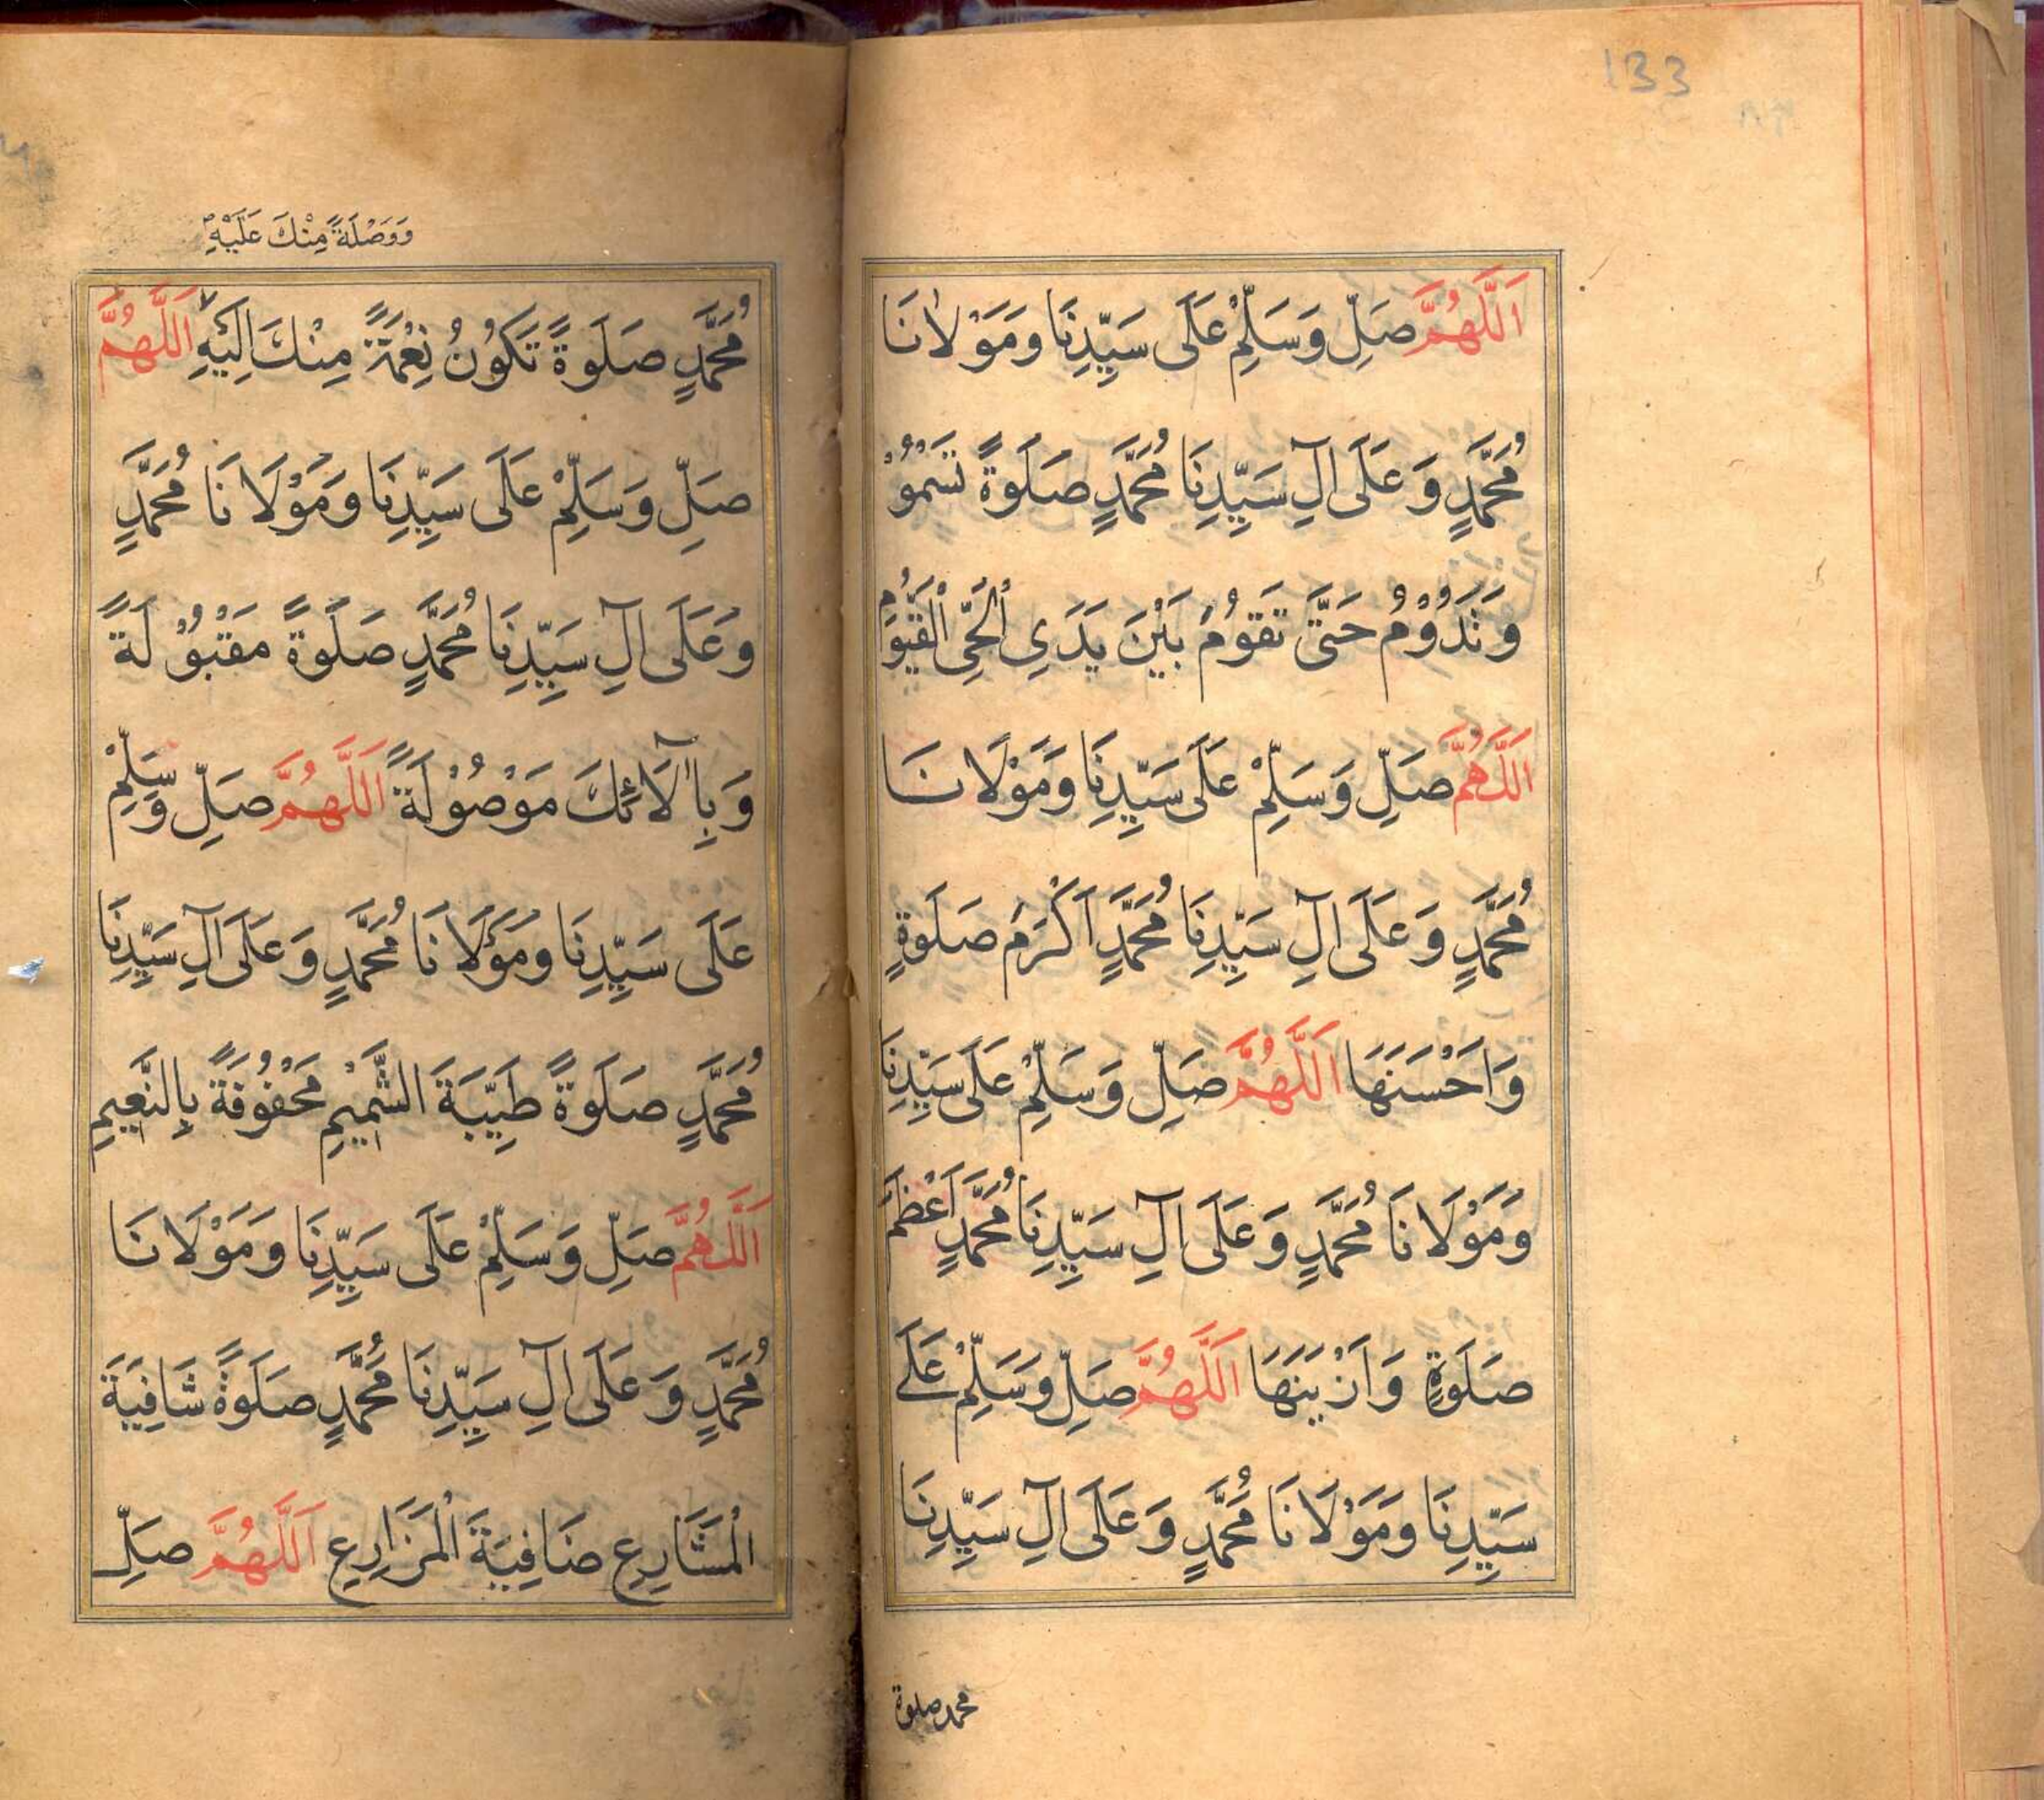 133
اَللّٰهُمَّ صَلِّ وَسَلِّمْ عَلَى سَيِّدِنَا وَمَوْلَانَا
مُحَمَّدٍ وَعَلَى آلِ سَيِّدِنَا مُحَمَّدٍ صَلَوةً تَسْمُوْ
وَتَدُوْمُ حَتّٰى تَقُوْمُ بَيْنَ يَدَىِ الْحَىِّ الْقَيُّوْمِ
اَللّٰهُمَّ صَلِّ وَسَلِّمْ عَلَى سَيِّدِنَا وَمَوْلَانَا
مُحَمَّدٍ وَعَلَى آلِ سَيِّدِنَا مُحَمَّدٍ اَكْرَمَ صَلَوةٍ
وَاَحْسَنَهَا اَللّٰهُمَّ صَلِّ وَسَلِّمْ عَلَى سَيِّدِنَا
وَمَوْلَانَا مُحَمَّدٍ وَعَلَى آلِ سَيِّدِنَا مُحَمَّدٍ اَعْظَمَ
صَلَوةٍ وَاَزْيَنَهَا اَللّٰهُمَّ صَلِّ وَسَلِّمْ عَلَى
سَيِّدِنَا وَمَوْلَانَا مُحَمَّدٍ وَعَلَى آلِ سَيِّدِنَا
محمد صلوة
وَوَصْلَةً مِنْكَ عَلَيْهِ
مُحَمَّدٍ صَلَوةً تَكُوْنُ نِعْمَةً مِنْكَ اِلَيْهِ اَللّٰهُمَّ
صَلِّ وَسَلِّمْ عَلَى سَيِّدِنَا وَمَوْلَانَا مُحَمَّدٍ
وَعَلَى آلِ سَيِّدِنَا مُحَمَّدٍ صَلَوةً مَقْبُوْلَةً
وَبِاٰلَائِكَ مَوْصُوْلَةً اَللّٰهُمَّ صَلِّ وَسَلِّمْ
عَلَى سَيِّدِنَا وَمَوْلَانَا مُحَمَّدٍ وَعَلَى آلِ سَيِّدِنَا
مُحَمَّدٍ صَلَوةً طَيِّبَةَ الشَّمِيْمِ مَحْفُوْفَةً بِالنَّعِيْمِ
اَللّٰهُمَّ صَلِّ وَسَلِّمْ عَلَى سَيِّدِنَا وَمَوْلَانَا
مُحَمَّدٍ وَعَلَى آلِ سَيِّدِنَا مُحَمَّدٍ صَلَوةً شَافِيَةَ
الْمَشَارِعِ ضَافِيَةَ الْمَزَارِعِ اَللّٰهُمَّ صَلِّ